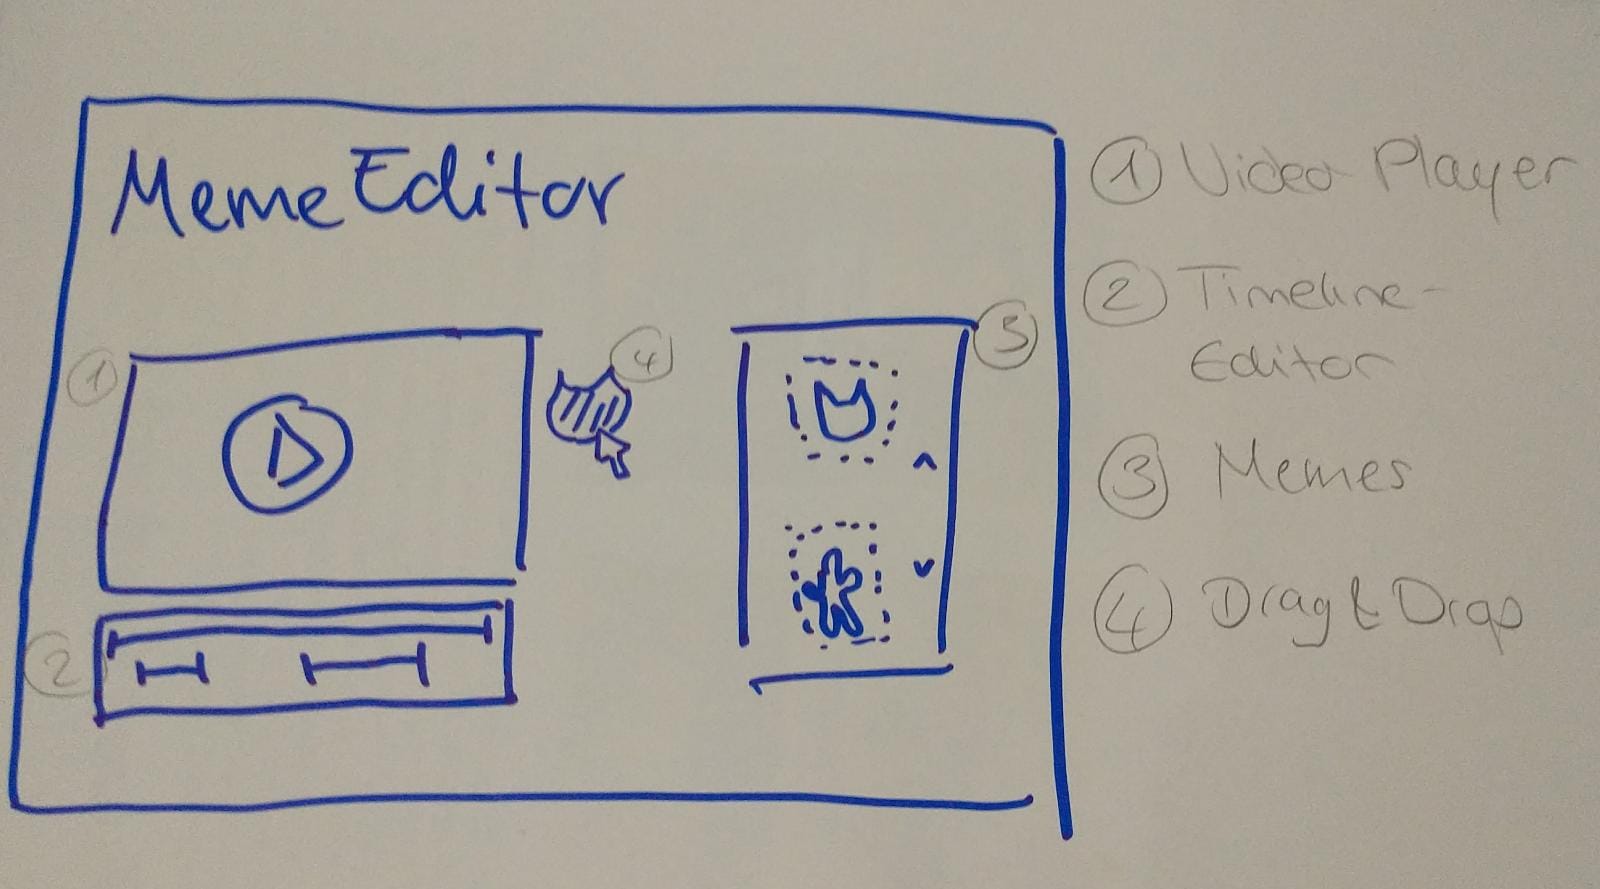 Meme Editor
1
4
3
2
1 Video Player
2 Timeline-
Editor
3 Memes
4 Drag & Drop